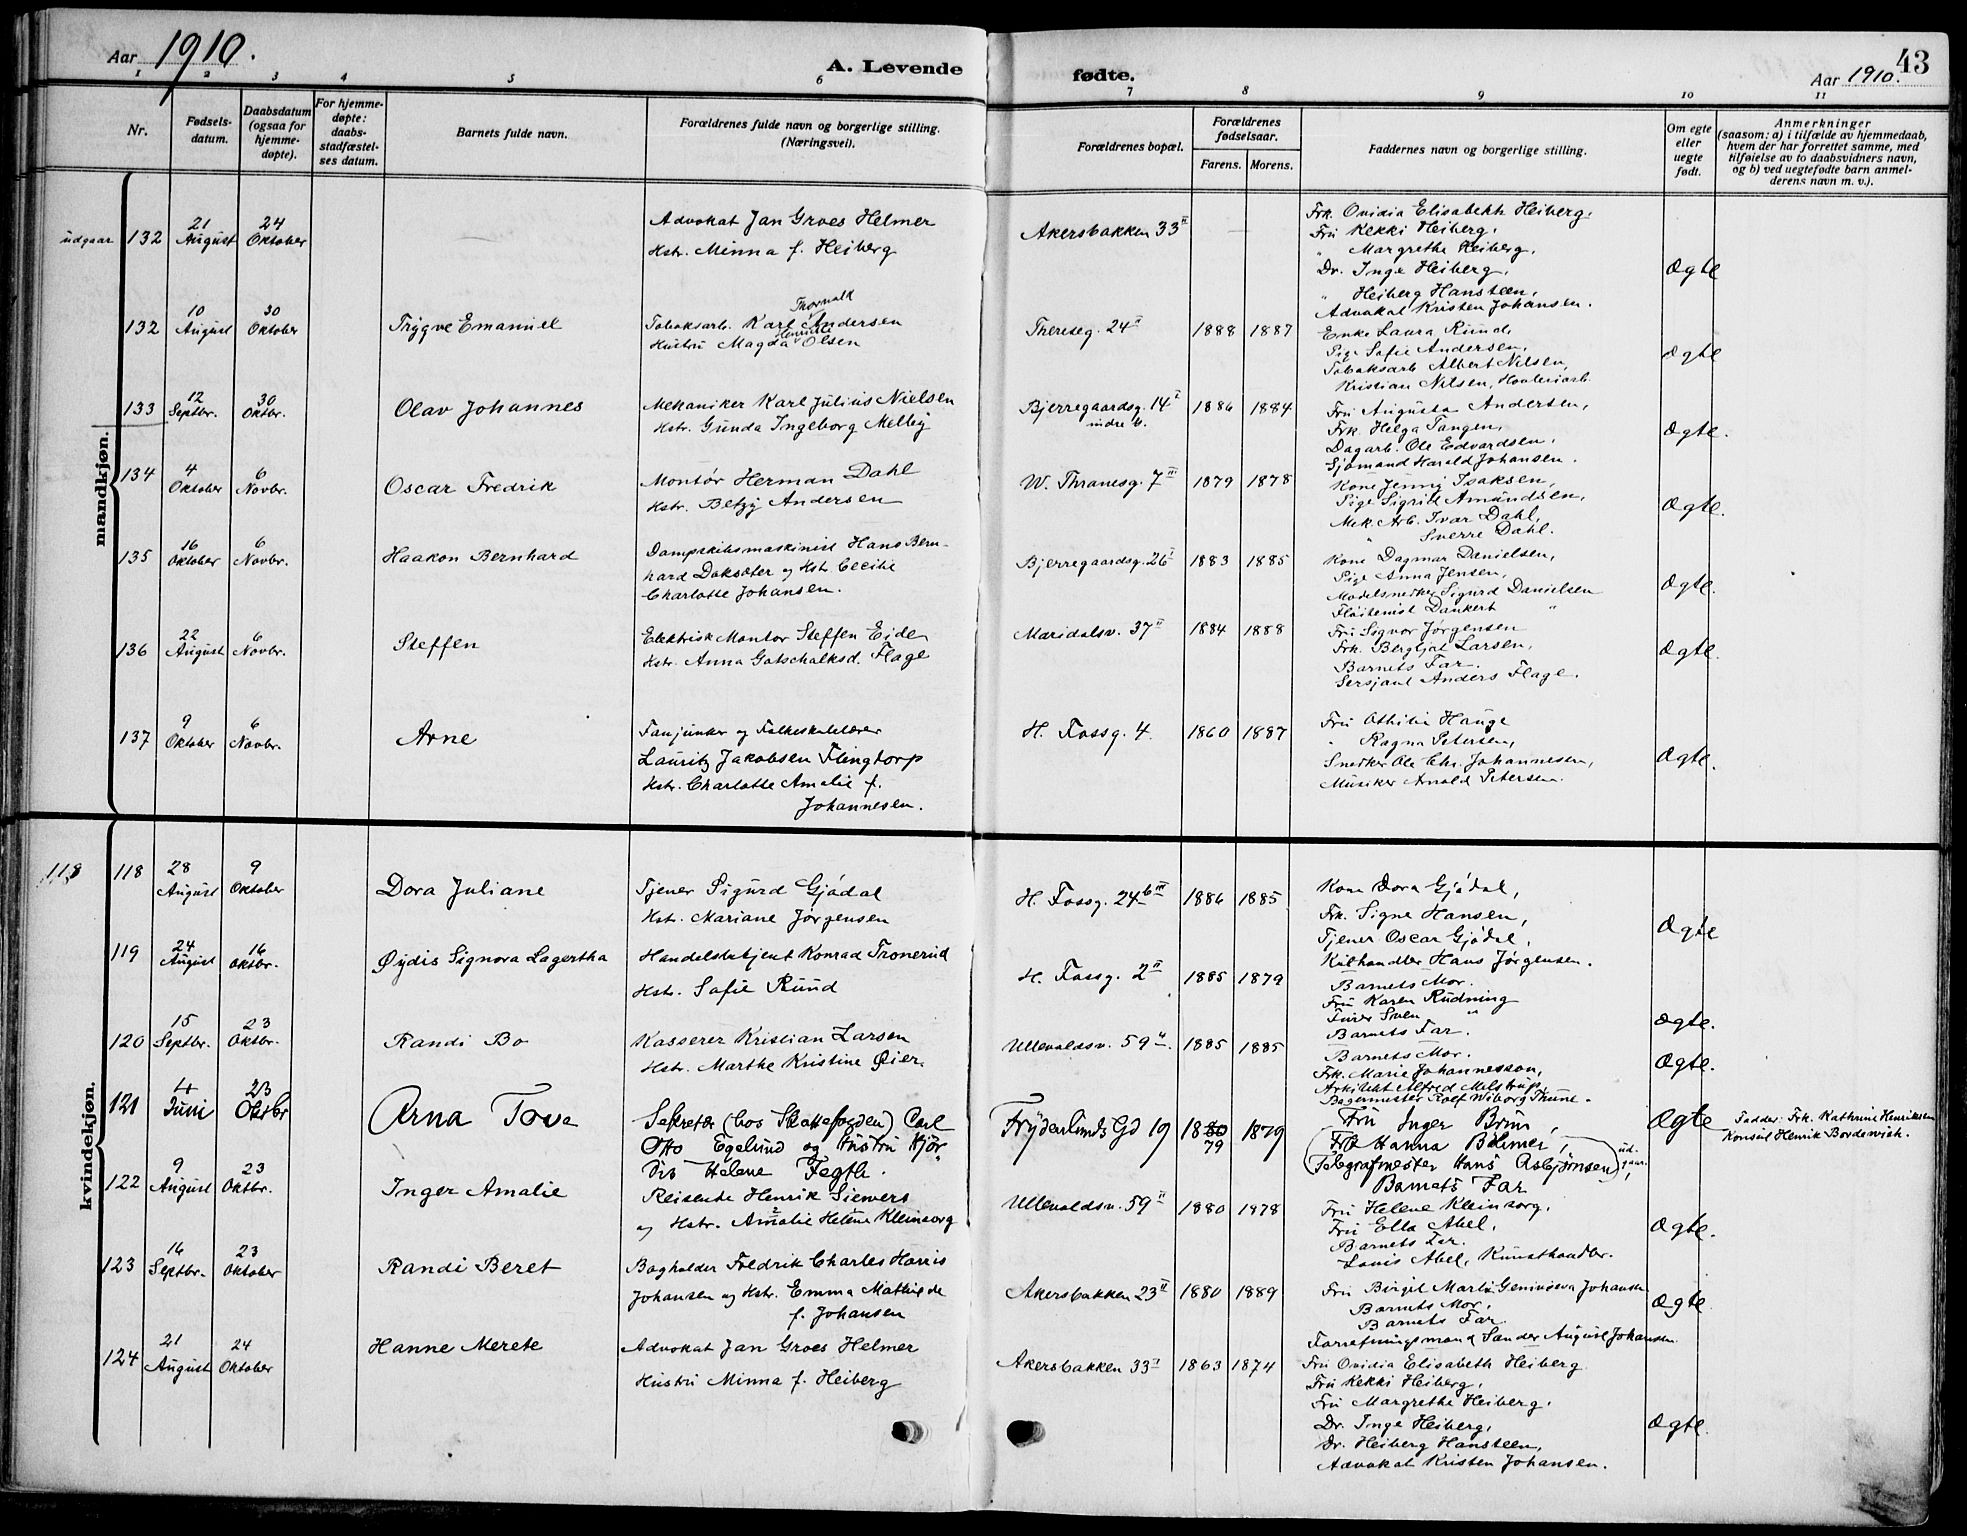 Aar 1910.
A. Levende
fødte.
Aar 1910.
43
1 2 3 4 5 6 7 8 9 10 11
Nr.
Fødsels-
datum.
Daabsdatum
(ogsaa for
hjemme-
døpte).
For hjemme-
døpte:
daabs-
stadfæstel-
ses datum.
Barnets fulde navn.
Forældrenes fulde navn og borgerlige stilling.
(Næringsvei).
Forældrenes bopæl.
Forældrenes
fødselsaar.
Farens. Morens.
Faddernes navn og borgerlige stilling.
Om egte
eller
uegte
født.
Anmerkninger
(saasom: a) i tilfælde av hjemmedaab,
hvem der har forrettet samme, med
tilføielse av to daabsvidners navn,
og b) ved uegtefødte barn anmel-
derens navn m. v.).
mandkjøn.
udgaar 132
21 August
24 Oktober
Advokat Jan Groes Helmer
Hstr. Minna f. Heiberg
Akersbakken 33 II
Frk. Ovidia Elisabeth Heiberg.
Fru Kekki Heiberg.
" Margrethe Heiberg.
Dr. Inge Heiberg.
" Heiberg Hansteen,
Advokat Kristen Johansen.
Ægte
132
10 August
30 Oktober
Trygve Emanuel
Thorvald
Tobaksarb. Karl Andersen
Henriette
Hustru Magda Olsen
Thereseg. 24 II
1888 1887
Enke Laura Ruud,
Pige Sofie Andersen,
Tobaksarb Albert Nilsen,
Kristian Nilsen,
Ægte
133
12 Septbr.
30 Oktbr.
Olav Johannes
Mekaniker Karl Julius Nielsen
Hstr. Gunda Ingeborg Melby
Bjerregaardsg. 14 I
indre b.
1886 1884
Fru Augusta Andersen,
Frk. Helga Tangen,
Dagarb. Ole Edvardsen.
Sjømand Harald Johansen.
Ægte.
134
4 Oktober
6 Novbr.
Oscar Fredrik
Montør Herman Dahl
Hstr. Betzy Andersen
W. Thranesg. 7 III
1879 1878
Kone Jenny Isaksen,
Pige Sigrid Amundsen,
Mek. Arb. Ivar Dahl,
" Sverre Dahl.
Ægte.
135
16 Oktober
6 Novbr.
Haakon Bernhard
Dampskibsmaskinist Hans Bern-
hard Doksæter og Hstr. Cecilie
Charlotte Johansen.
Bjerregaardsg. 26 I
1883 1885
Kone Dagmar Danielsen,
Pige Anna Jensen,
Modelsnedker Sigurd Danielsen
Fløitenist Dankert "
Ægte.
136
22 August
6 Novbr.
Steffen
Elektrisk Montør Steffen Eide
Hstr. Anna Gotschalksd. Flage
Maridalsv. 37 II
1884 1888
Fru Signor Jørgensen
Frk. Bergljot Larsen,
Barnets Far.
Sersjant Anders Flage.
Ægte.
137
9 Oktober
6 Novbr.
Arne
Fanjunker og Folkeskolelærer
Lauritz Jakobsen Flingtorp
Hstr. Charlotte Amalie f.
Johannesen.
H. Fossg. 4.
1860 1887
Fru Othilie Hauge
" Ragna Petersen,
Snedker Ole Chr. Johannesen,
Musiker Arnold Petersen.
Ægte.
kvindekjøn.
118 118
28 August
9 Oktober
Dora Juliane
Tjener Sigurd Gjødal
Hstr. Mariane Jørgensen
H. Fossg. 24 b III
1886 1885
Kone Dora Gjødal,
Frk. Signe Hansen,
Tjener Oscar Gjødal,
Kulhandler Hans Jørgensen.
Ægte
119
24 August
16 Oktbr.
Øydis Signora Lagertha
Handelsbetjent Konrad Tronerud
Hstr. Sofie Ruud
H. Fossg. 2 II
1885 1879
Barnets Mor.
Fru Karen Rudning
Furer Sven "
Barnets Far.
Ægte.
120
15 Septbr.
23 Oktbr.
Randi Bo
Kasserer Kristian Larsen
Hstr. Marthe Kristine Øier.
Ullevoldsv. 59
1885 1885
Barnets Mor.
Frk. Marie Johannesson,
Arkitekt Alfred Melstrup,
Bagermester Rolf Wiborg Thune.
Ægte.
121
4 Juni
23 Oktbr
Arna Tove
Sekretær (hos Skattefogden) Carl
Otto Egelund og Hustru Hjør-
dis Helene Fegth.
Frydenlunds Gd 19
1880 79 1879
Fru Inger Brun,
Frk Hanna Böhmer,
(Telegrafmester Hans Asbjørnsen) udgaar,
Barnets Far
Ægte
Fadder: Frk. Kathrine Henriksen
Konsul Henrik Bordewich.
122
9 August
23 Oktbr.
Inger Amalie
Reisende Henrik Siewers
og Hstr. Amalie Helene Kleinsorg
Ullevoldsv. 59 II
1880 1878
Fru Helene Kleinsorg,
Fru Ella Abel,
Barnets Far.
Louis Abel, Kunsthandler.
Ægte.
123
16 Septbr.
23 Oktober
Randi Beret
Bogholder Fredrik Charles Harris
Johansen og Hstr. Emma Mathilde
f. Johansen
Akersbakken 23 II
1880 1889
Fru Birgit Marti Genivieva Johansen
Barnets Mor,
Barnets Far.
Forretningsmand Sander August Johansen
Ægte
124
21 August
24 Oktober
Hanne Merete
Advokat Jan Groes Helmer
Hustru Minna f. Heiberg
Akersbakken 33 II
1863 1874
Fru Ovidia Elisabeth Heiberg
Fru Kekki Heiberg,
Fru Margrethe Heiberg.
Dr. Inge Heiberg,
Dr. Heiberg Hansteen,
Advokat Kristen Johansen.
Ægte